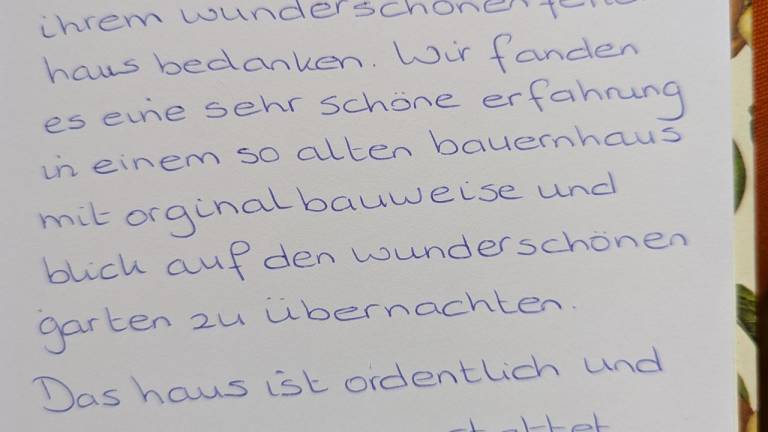 ihrem wunderschönen
haus bedanken. Wir fanden
es eine sehr schöne erfahrung
in einem so alten bauernhaus
mit orginal bauweise und
blick auf den wunderschönen
garten zu übernachten.
Das haus ist ordentlich und